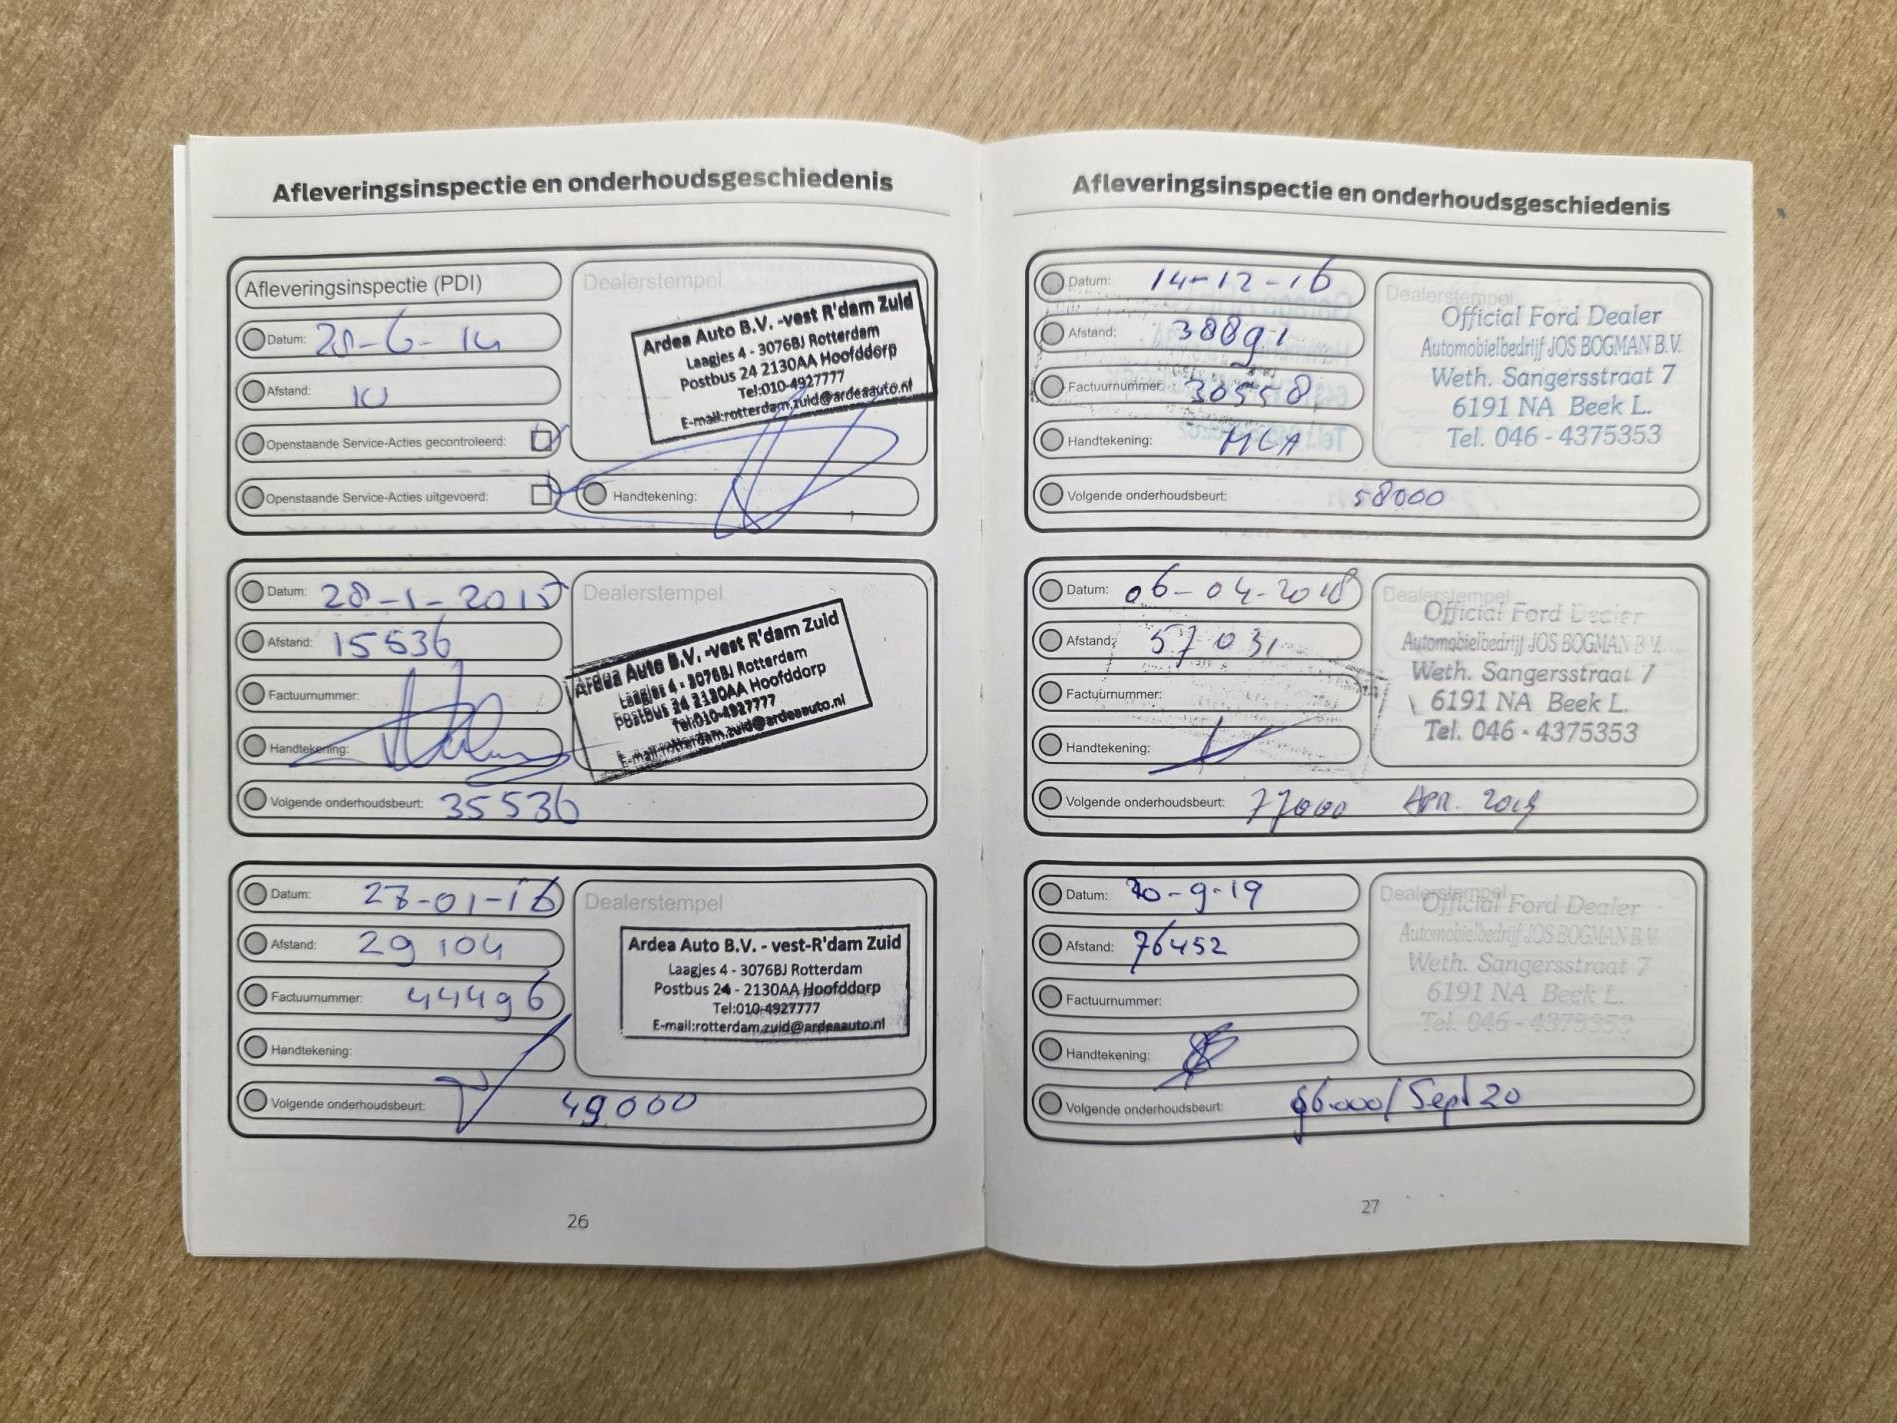 Afleveringsinspectie en onderhoudsgeschiedenis
Afleveringsinspectie (PDI)
Datum: 20-6-14
Afstand: 10
Openstaande Service-Acties gecontroleerd:
Openstaande Service-Acties uitgevoerd:
Dealerstempel
Ardea Auto B.V. -vest R'dam Zuid
Laagjes 4 - 3076BJ Rotterdam
Postbus 24 2130AA Hoofddorp
Tel:010-4927777
E-mail:rotterdam.zuid@ardeaauto.nl
Handtekening:
Datum: 28-1-2015
Afstand: 15536
Factuurnummer:
Handtekening:
Volgende onderhoudsbeurt: 35536
Dealerstempel
Ardea Auto B.V. -vest R'dam Zuid
Laagjes 4 - 3076BJ Rotterdam
Postbus 24 2130AA Hoofddorp
Tel:010-4927777
E-mail:rotterdam.zuid@ardeaauto.nl
Datum: 27-01-16
Afstand: 29104
Factuurnummer: 44496
Handtekening:
Volgende onderhoudsbeurt: 49000
Dealerstempel
Ardea Auto B.V. - vest-R'dam Zuid
Laagjes 4 - 3076BJ Rotterdam
Postbus 24 - 2130AA Hoofddorp
Tel:010-4927777
E-mail:rotterdam.zuid@ardeaauto.nl
26
Afleveringsinspectie en onderhoudsgeschiedenis
Datum: 14-12-16
Afstand: 38891
Factuurnummer: 30558
Handtekening: MCA
Volgende onderhoudsbeurt: 58000
Dealerstempel
Official Ford Dealer
Automobielbedrijf JOS BOGMAN B.V.
Weth. Sangersstraat 7
6191 NA Beek L.
Tel. 046 - 4375353
Datum: 06-04-2018
Afstand: 57031
Factuurnummer:
Handtekening:
Volgende onderhoudsbeurt: 77000 APR. 2019
Dealerstempel
Official Ford Dealer
Automobielbedrijf JOS BOGMAN B.V.
Weth. Sangersstraat 7
6191 NA Beek L.
Tel. 046 - 4375353
Datum: 20-9-19
Afstand: 76452
Factuurnummer:
Handtekening:
Volgende onderhoudsbeurt: 96.000/ Sept 20
Dealerstempel
Official Ford Dealer
Automobielbedrijf JOS BOGMAN B.V.
Weth. Sangersstraat 7
6191 NA Beek L.
Tel. 046 - 4375353
27